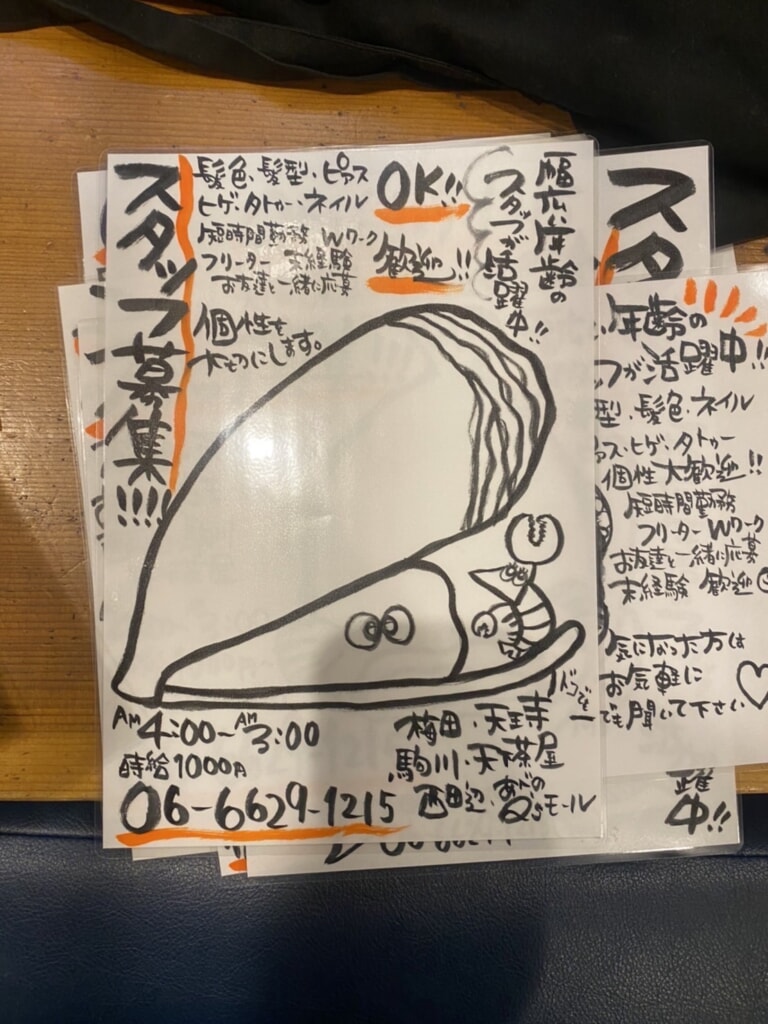 スタッフ募集!!!!
髪色・髪型・ピアス
ヒゲ・タトゥー・ネイル
OK!!
短時間勤務 Wワーク
フリーター 未経験
お友達と一緒に応募
歓迎!!
個性を
大切にします。
幅広い年齢の
スタッフが活躍中!!
AM4:00~AM3:00
時給1000円
06-6629-1215
梅田・天王寺
駒川・天茶屋
西田辺・あべの
Q'sモール
スタ
年齢の
フが活躍中!!
型・髪色・ネイル
アス・ヒゲ・タトゥー
個性大歓迎!!
短時間勤務
フリーター Wワーク
お友達と一緒に応募
未経験 歓迎
気になった方は
お気軽に
でも聞いて下さい
躍中!!